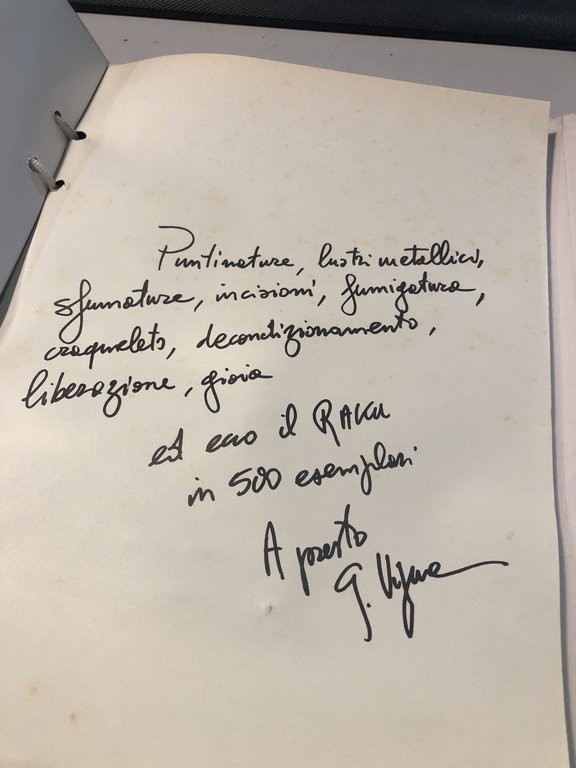 Puntinature, lustri metallici,
sfumature, incisioni, fumigatura,
craquelato, decondizionamento,
liberazione, gioia
ed ecco il RAKU
in 500 esemplari
A presto
G.